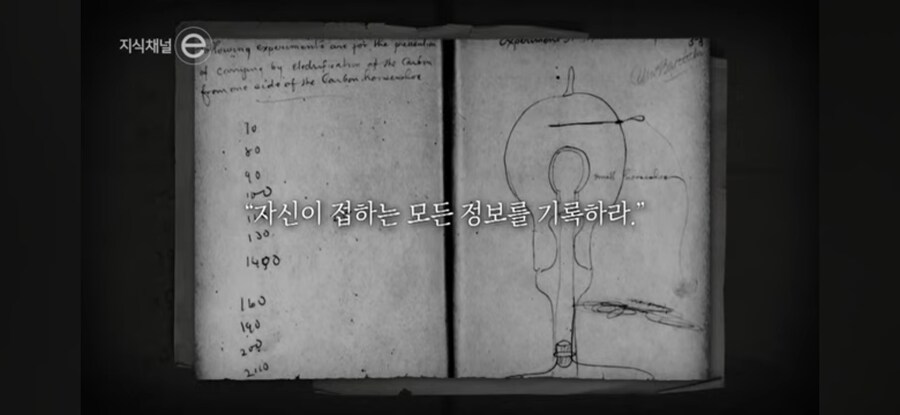 지식채널 e
following experiments are for the prevention
of carrying by electrification of the Carbon
from one side of the Carbon horseshoe
70
80
90
100
"자신이 접하는 모든 정보를 기록하라."
130
1400
160
190
200
2110
Experiment
small